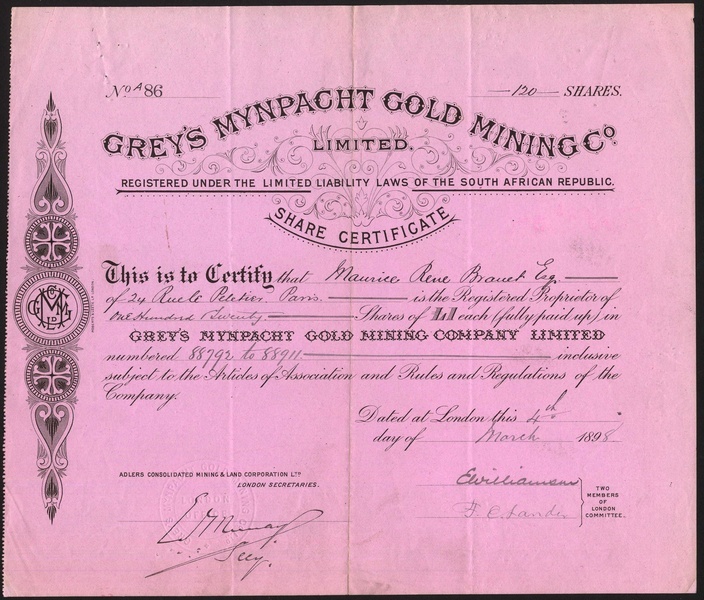 No A86
120 SHARES.
GREY'S MYNPACHT GOLD MINING Co
LIMITED.
REGISTERED UNDER THE LIMITED LIABILITY LAWS OF THE SOUTH AFRICAN REPUBLIC.
SHARE CERTIFICATE
This is to Certify that Maurice Rene Brauet Esq
of 24 Rue le Peletier. Paris. is the Registered Proprietor of
One Hundred & Twenty Shares of £1 each (fully paid up) in
GREY'S MYNPACHT GOLD MINING COMPANY LIMITED
numbered 88792 to 88911 inclusive
subject to the Articles of Association and Rules and Regulations of the
Company.
Dated at London this 4th
day of March 1898
ADLERS CONSOLIDATED MINING & LAND CORPORATION LTD
LONDON SECRETARIES.
Secy.
EWilliamson
TWO
MEMBERS
OF
LONDON
COMMITTEE.